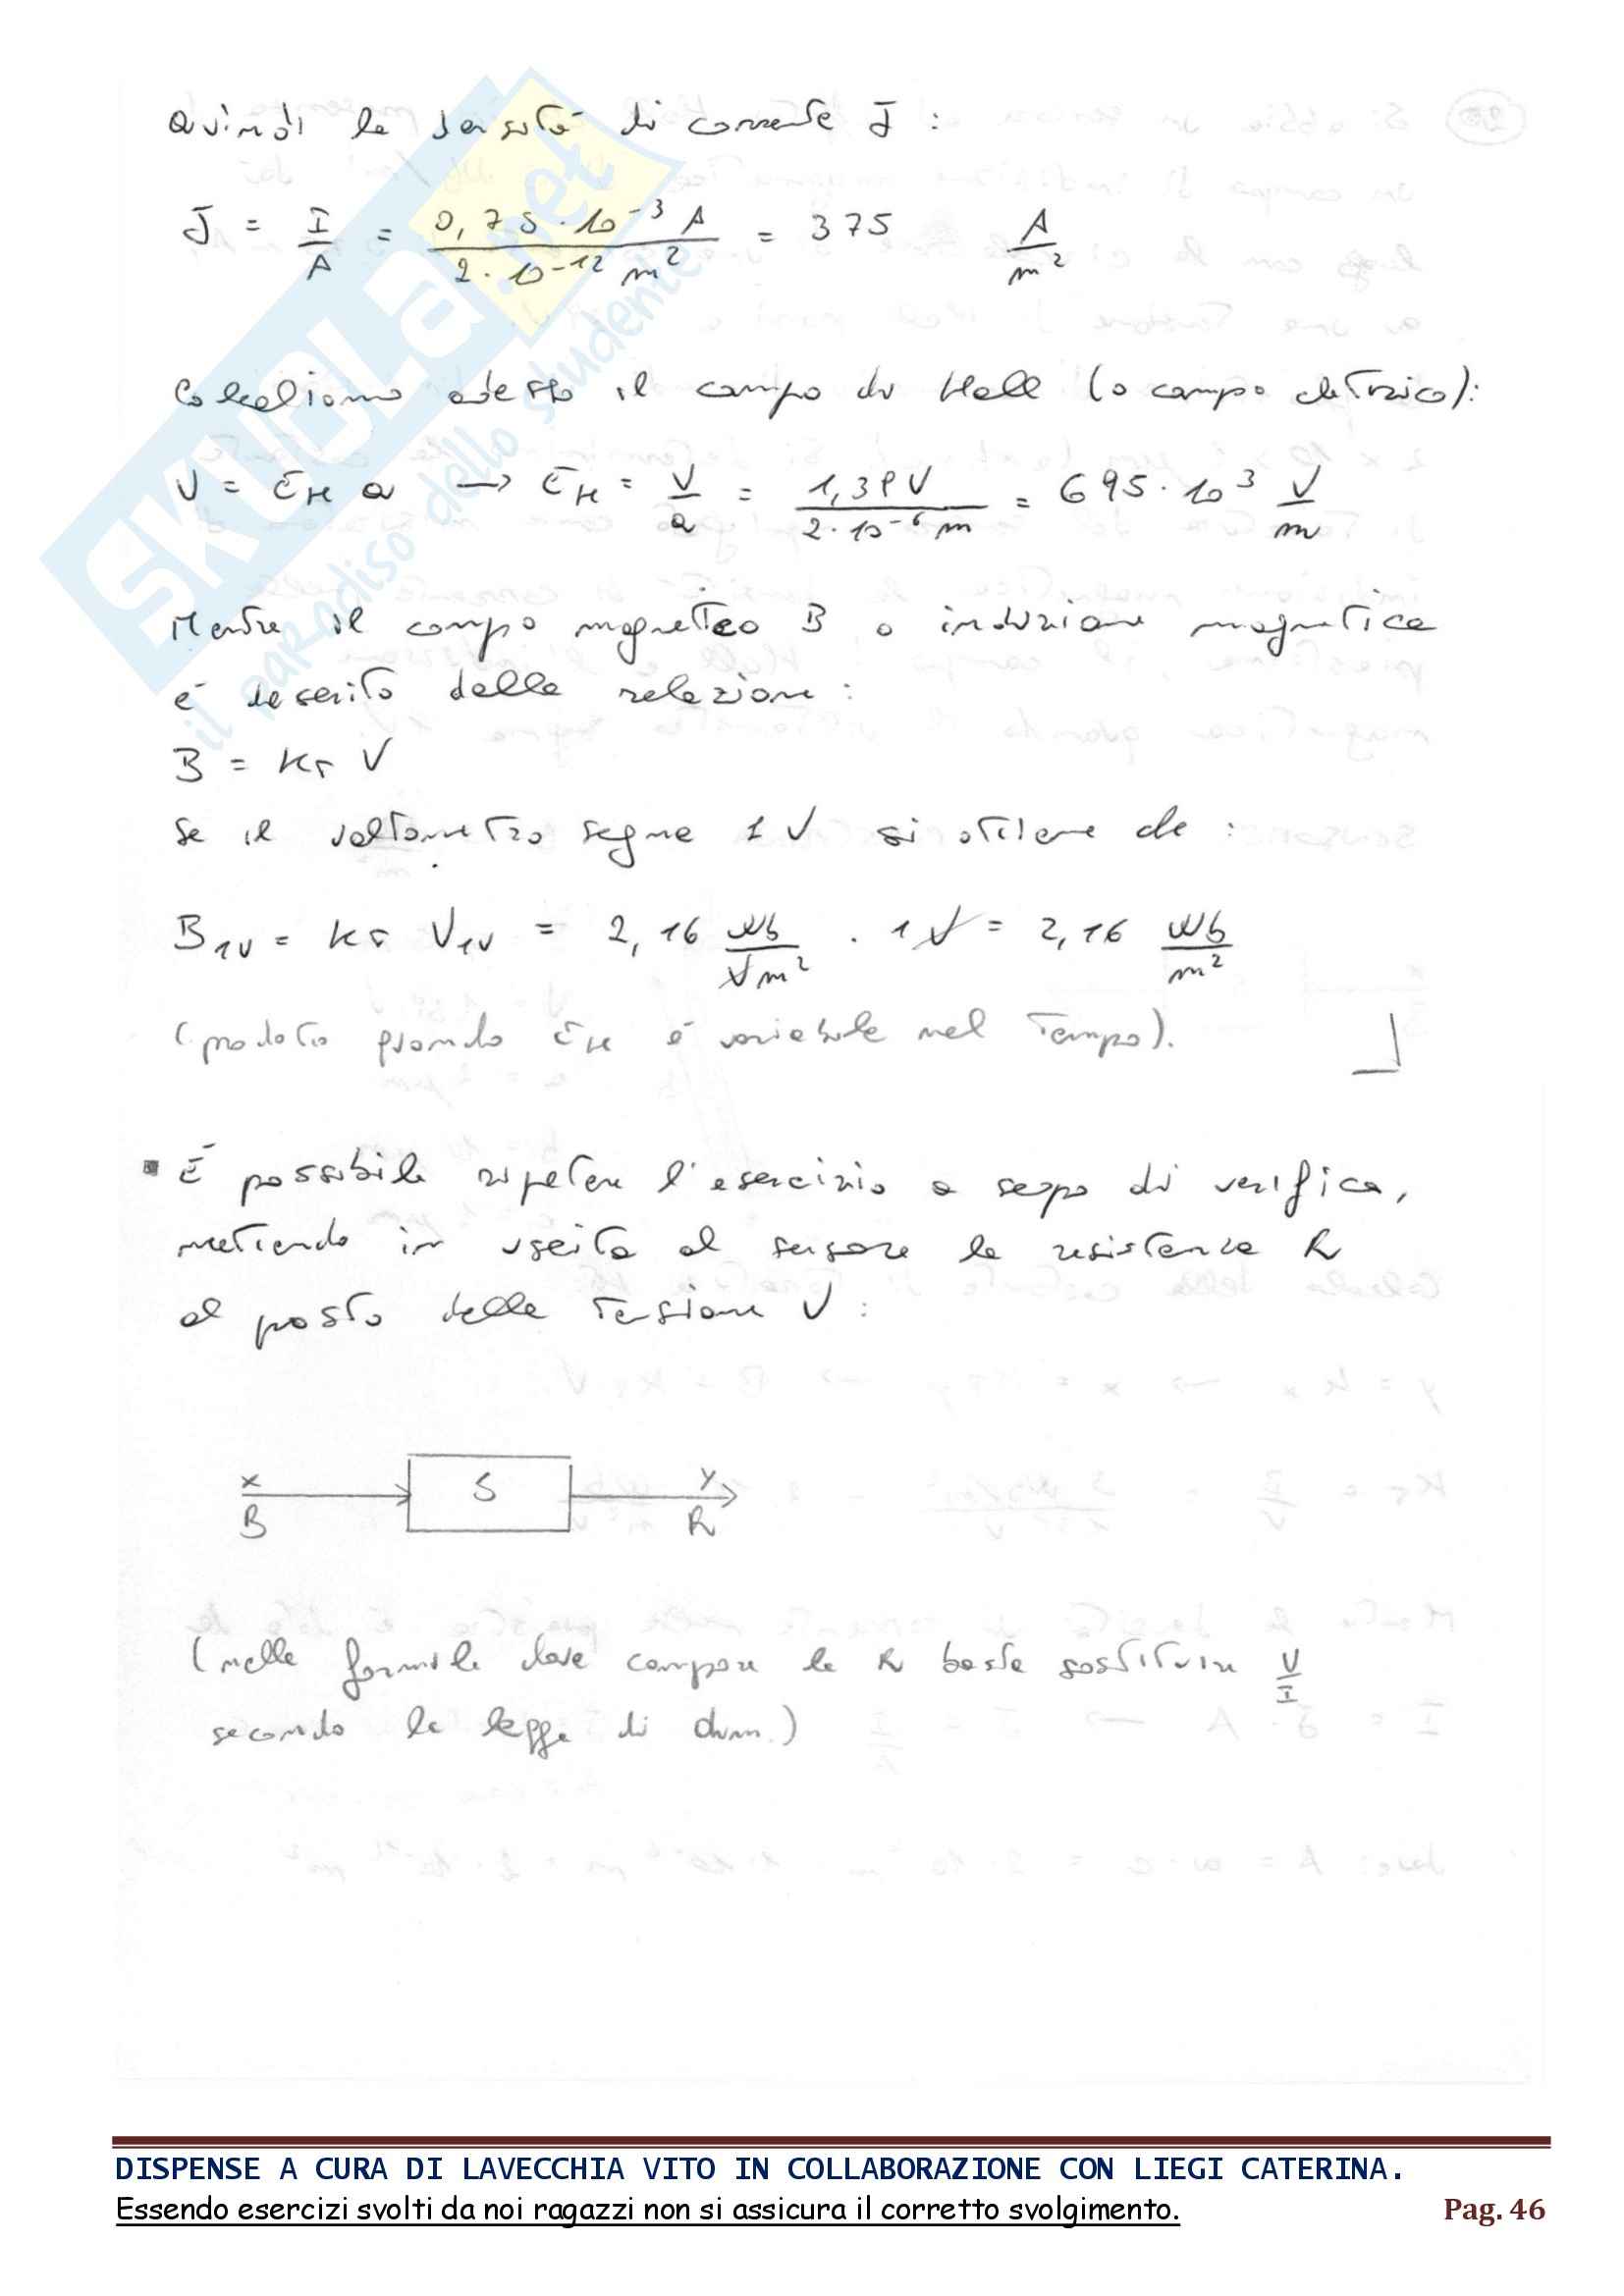 Quindi la densità di corrente J :
J = I/A = 0,75 · 10⁻³ A / 2 · 10⁻¹² m² = 375 A/m²
Calcoliamo adesso il campo di Hall (o campo elettrico):
V = EH a → EH = V/a = 1,39 V / 2 · 10⁻⁶ m = 695 · 10³ V/m
Mentre il campo magnetico B o induzione magnetica
è descritto dalla relazione :
B = KT V
Se il voltometro segna 1 V si ottiene che :
B1V = KT V1V = 2,16 Wb/Vm² · 1 V = 2,16 Wb/m²
(prodotto quando EH è variabile nel tempo).
È possibile ripetere l'esercizio a scopo di verifica,
mettendo in uscita al sensore la resistenza R
al posto della tensione V :
x S y
B R
(nelle formule dove compare la R basta sostituire V/I
secondo la legge di Ohm.)
SKUOLA.net
il paradiso dello studente
DISPENSE A CURA DI LAVECCHIA VITO IN COLLABORAZIONE CON LIEGI CATERINA.
Essendo esercizi svolti da noi ragazzi non si assicura il corretto svolgimento. Pag. 46